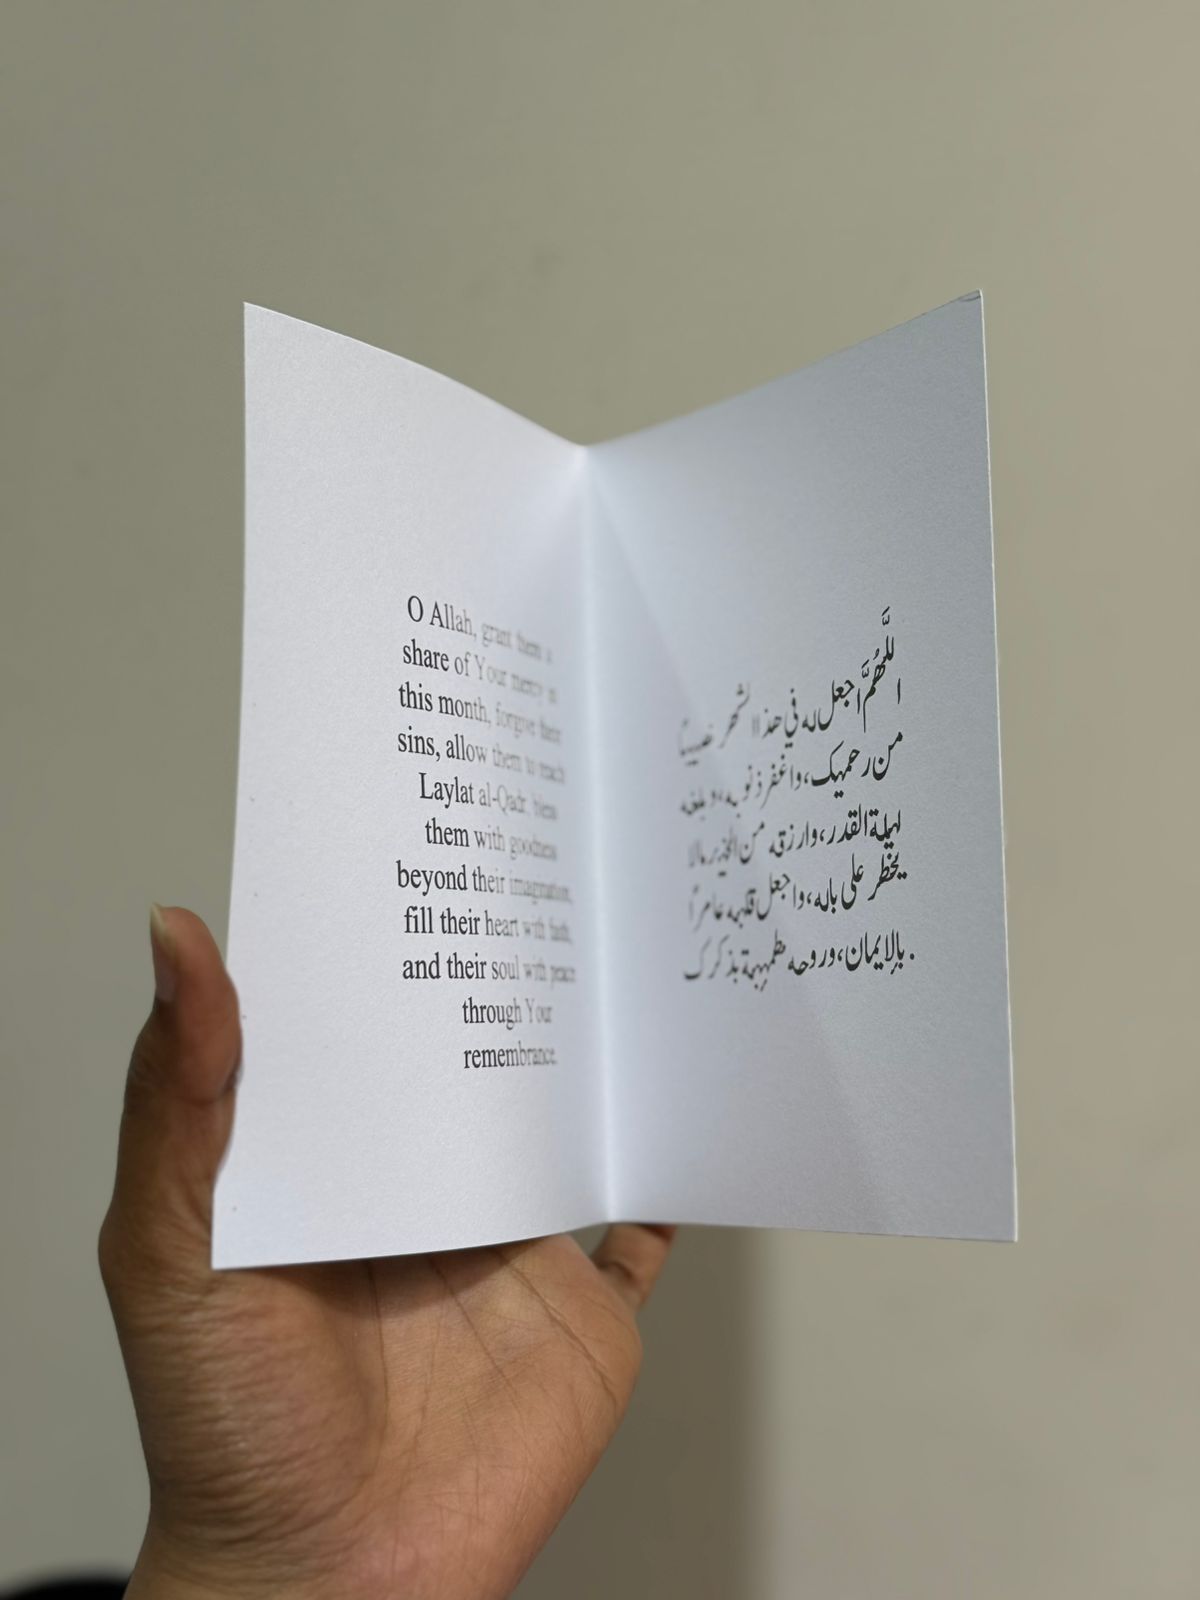 O Allah, grant them a
share of Your mercy in
this month, forgive their
sins, allow them to reach
Laylat al-Qadr, bless
them with goodness
beyond their imagination,
fill their heart with faith,
and their soul with peace
through Your
remembrance.
اللَّهُمَّ اجعل له في هذا الشهر نصيباً
من رحمتك، واغفر ذنوبه، وبلغه
ليلة القدر، وارزقه من الخير مالا
يخطر على باله، واجعل قلبه عامراً
بالإيمان، وروحه مطمئنة بذكرك.